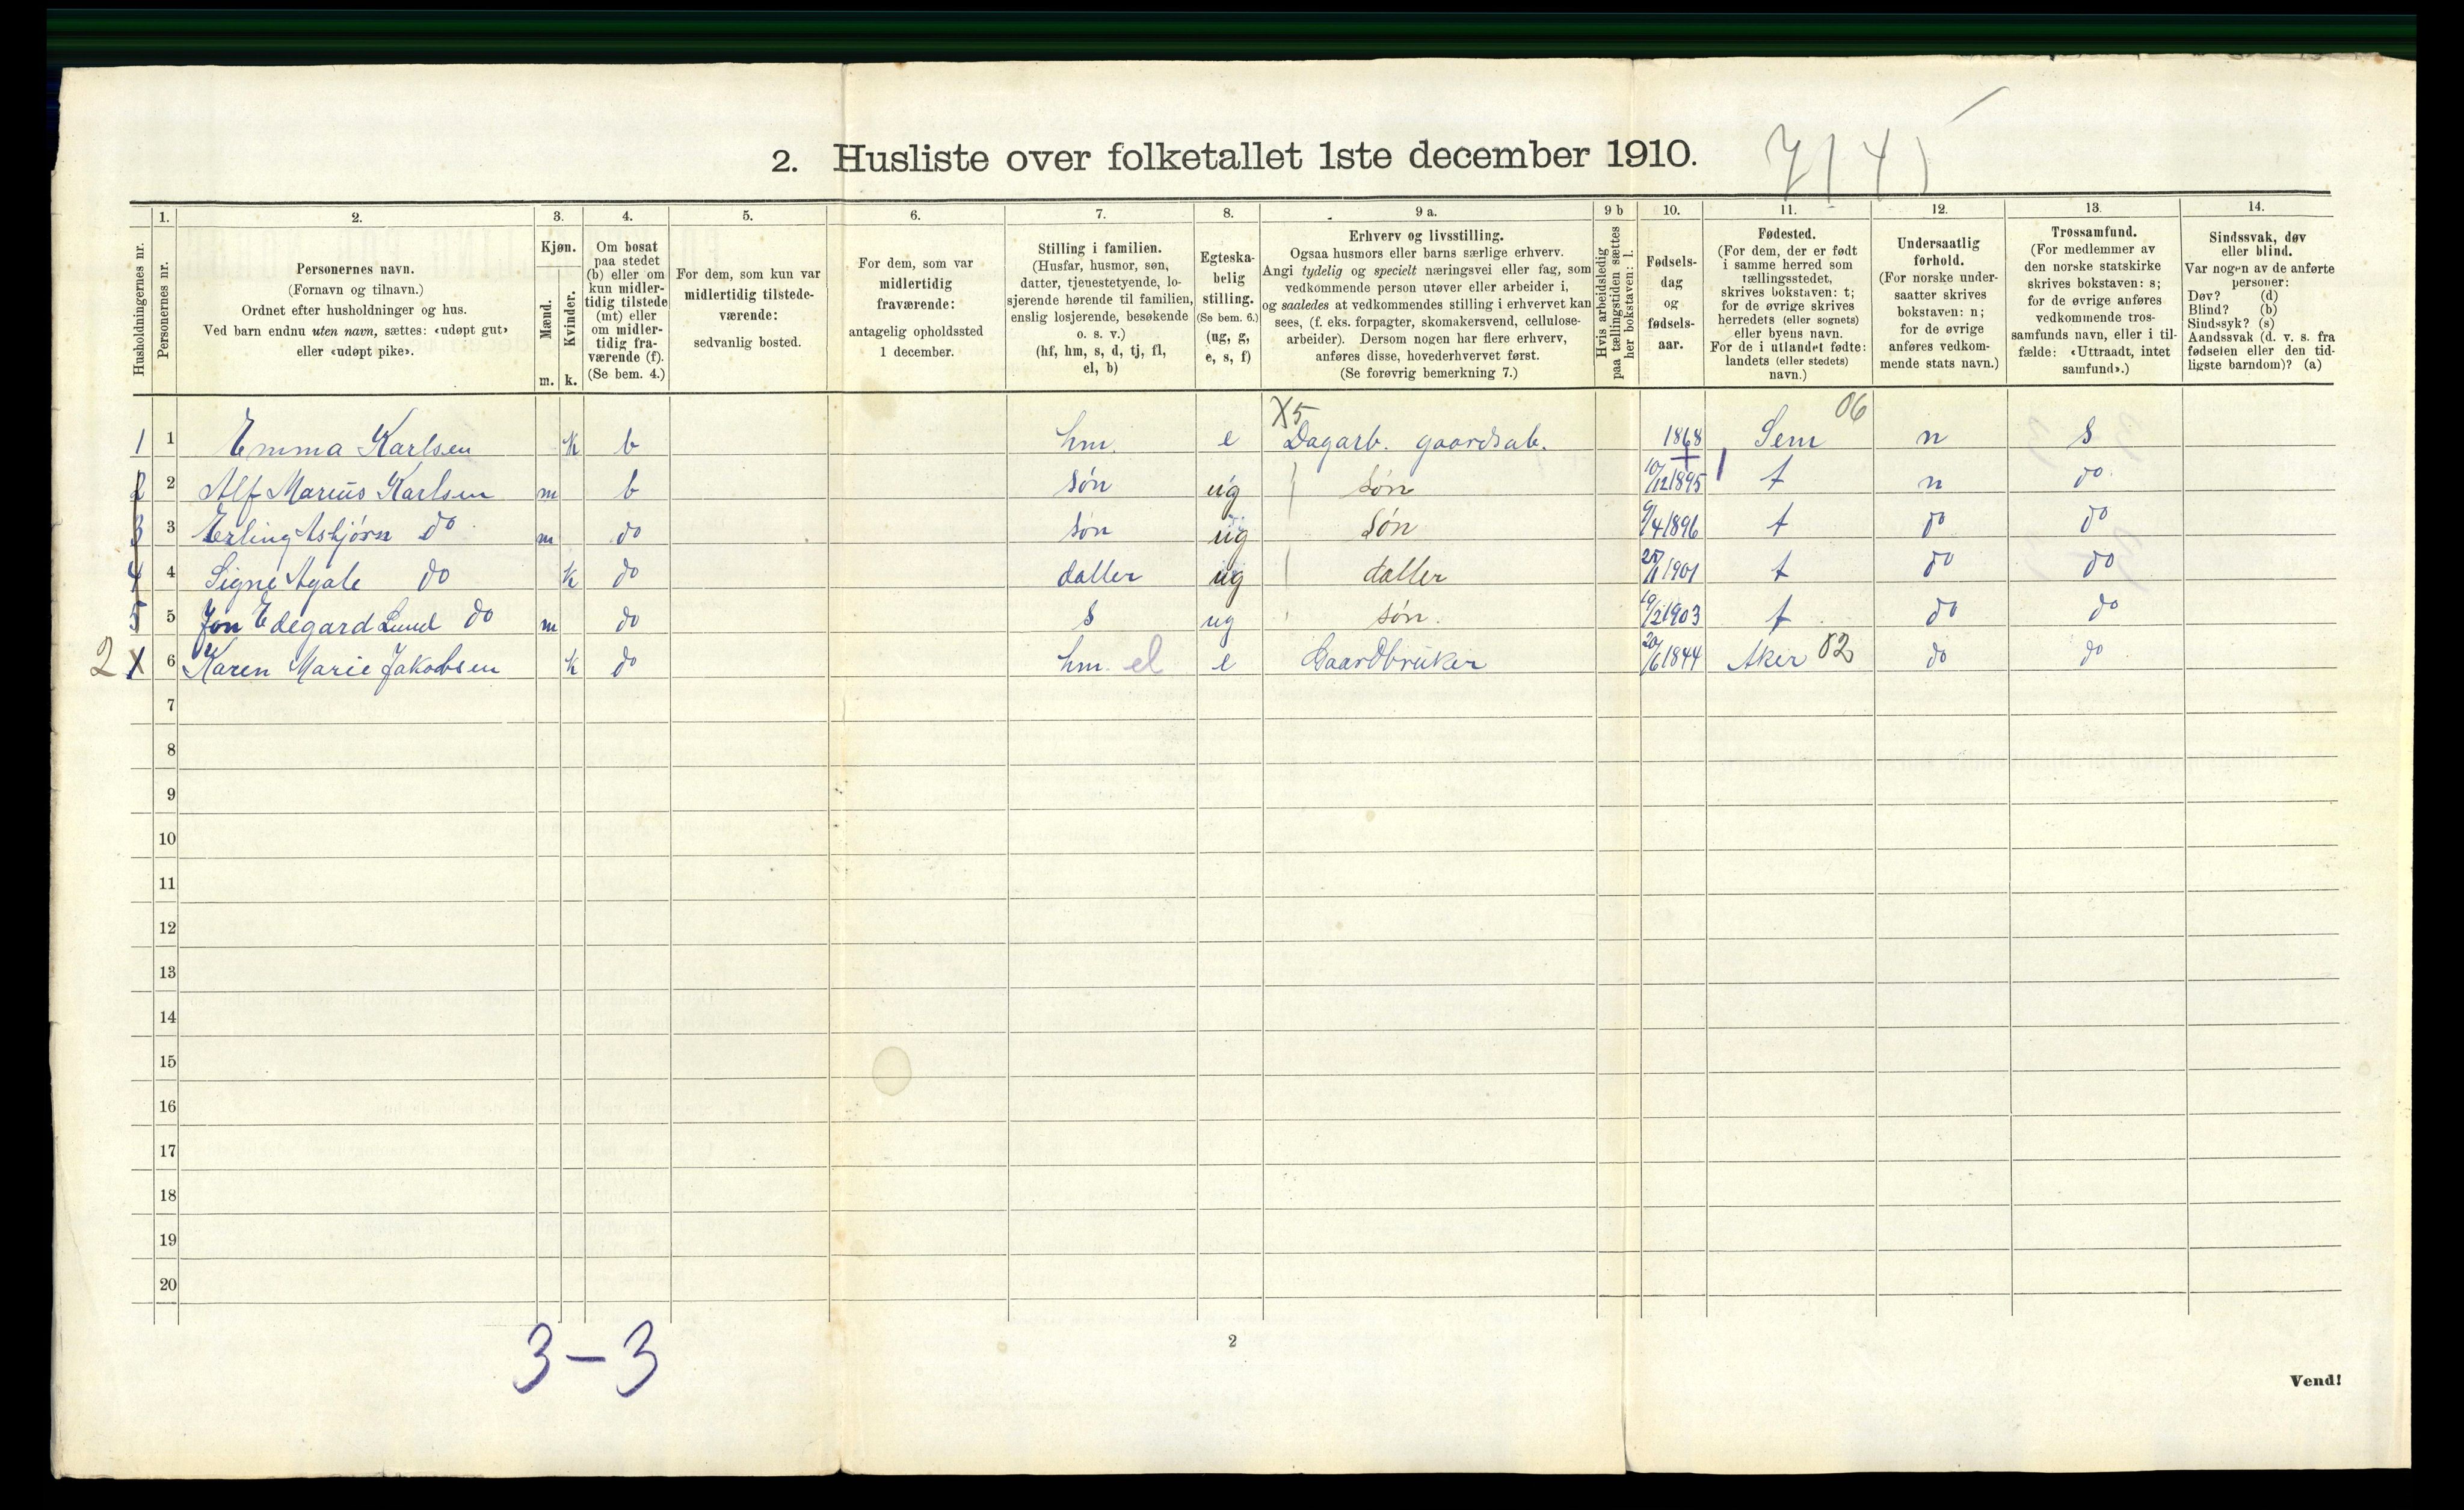 2. Husliste over folketallet 1ste december 1910.
7 | 4 )
1. 2. 3. 4. 5. 6. 7. 8. 9 a. 9 b 10. 11. 12. 13. 14.
Husholdningernes nr.
Personernes nr.
Personernes navn.
(Fornavn og tilnavn.)
Ordnet efter husholdninger og hus.
Ved barn endnu uten navn, sættes: «udøpt gut»
eller «udøpt pike».
Kjøn.
Mænd.
Kvinder.
m. k.
Om bosat
paa stedet
(b) eller om
kun midler-
tidig tilstede
(mt) eller
om midler-
tidig fra-
værende (f).
(Se bem. 4.)
For dem, som kun var
midlertidig tilstede-
værende:
sedvanlig bosted.
For dem, som var
midlertidig
fraværende:
antagelig opholdssted
1 december.
Stilling i familien.
(Husfar, husmor, søn,
datter, tjenestetyende, lo-
sjerende hørende til familien,
enslig losjerende, besøkende
o. s. v.)
(hf, hm, s, d, tj, fl,
el, b)
Egteska-
belig
stilling.
(Se bem. 6.)
(ug, g,
e, s, f)
Erhverv og livsstilling.
Ogsaa husmors eller barns særlige erhverv.
Angi tydelig og specielt næringsvei eller fag, som
vedkommende person utøver eller arbeider i,
og saaledes at vedkommendes stilling i erhvervet kan
sees, (f. eks. forpagter, skomakersvend, cellulose-
arbeider). Dersom nogen har flere erhverv,
anføres disse, hovederhvervet først.
(Se forøvrig bemerkning 7.)
Hvis arbeidsledig
paa tællingstiden sættes
her bokstaven: l.
Fødsels-
dag
og
fødsels-
aar.
Fødested.
(For dem, der er født
i samme herred som
tællingsstedet,
skrives bokstaven: t;
for de øvrige skrives
herredets (eller sognets)
eller byens navn.
For de i utlandet fødte:
landets (eller stedets)
navn.)
Undersaatlig
forhold.
(For norske under-
saatter skrives
bokstaven: n;
for de øvrige
anføres vedkom-
mende stats navn.)
Trossamfund.
(For medlemmer av
den norske statskirke
skrives bokstaven: s;
for de øvrige anføres
vedkommende tros-
samfunds navn, eller i til-
fælde: «Uttraadt, intet
samfund».)
Sindssvak, døv
eller blind.
Var nogen av de anførte
personer:
Døv? (d)
Blind? (b)
Sindssyk? (s)
Aandssvak (d. v. s. fra
fødselen eller den tid-
ligste barndom)? (a)
X5 06
1 1 Emma Karlsen k b hm. e Dagarb. gaardsab. 1868 Sem n s
2 2 Alf Marius Karlsen m b søn ug søn 10/12 1895 t n do
3 3 Erling Asbjørn do m do søn ug søn 9/4 1896 t do do
4 4 Signe Agate do k do datter ug datter 1901 t do do
5 5 Jon Edegard Lund do m do s ug søn. 19/2 1903 t do do
2 1 6 Karen Marie Jakobsen k do hm. el e Gaardbruker 20/6 1844 Aker 02 do do
7
8
9
10
11
12
13
14
15
16
17
18
19
20
3-3
2
Vend!